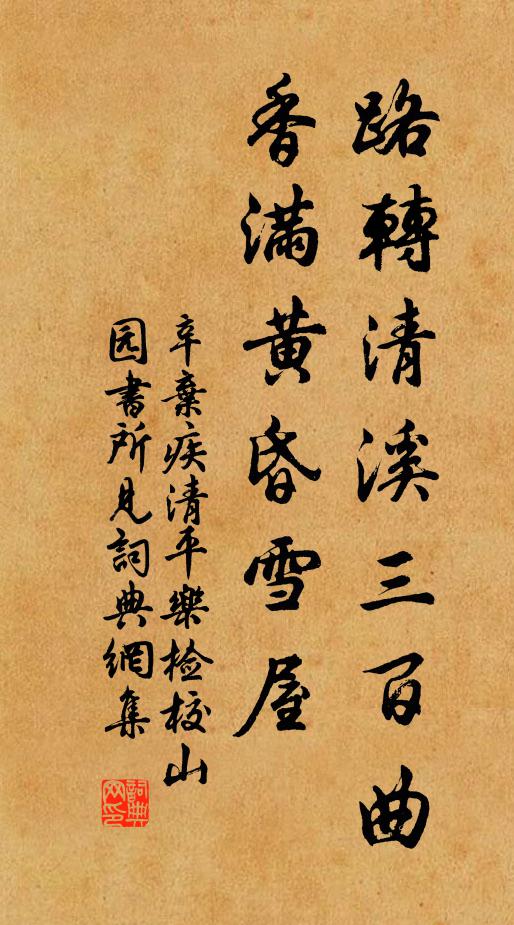 路轉清溪三百曲
香滿黄昏雪屋
辛棄疾清平樂检校山
园書所見詞典網集
詞典网印